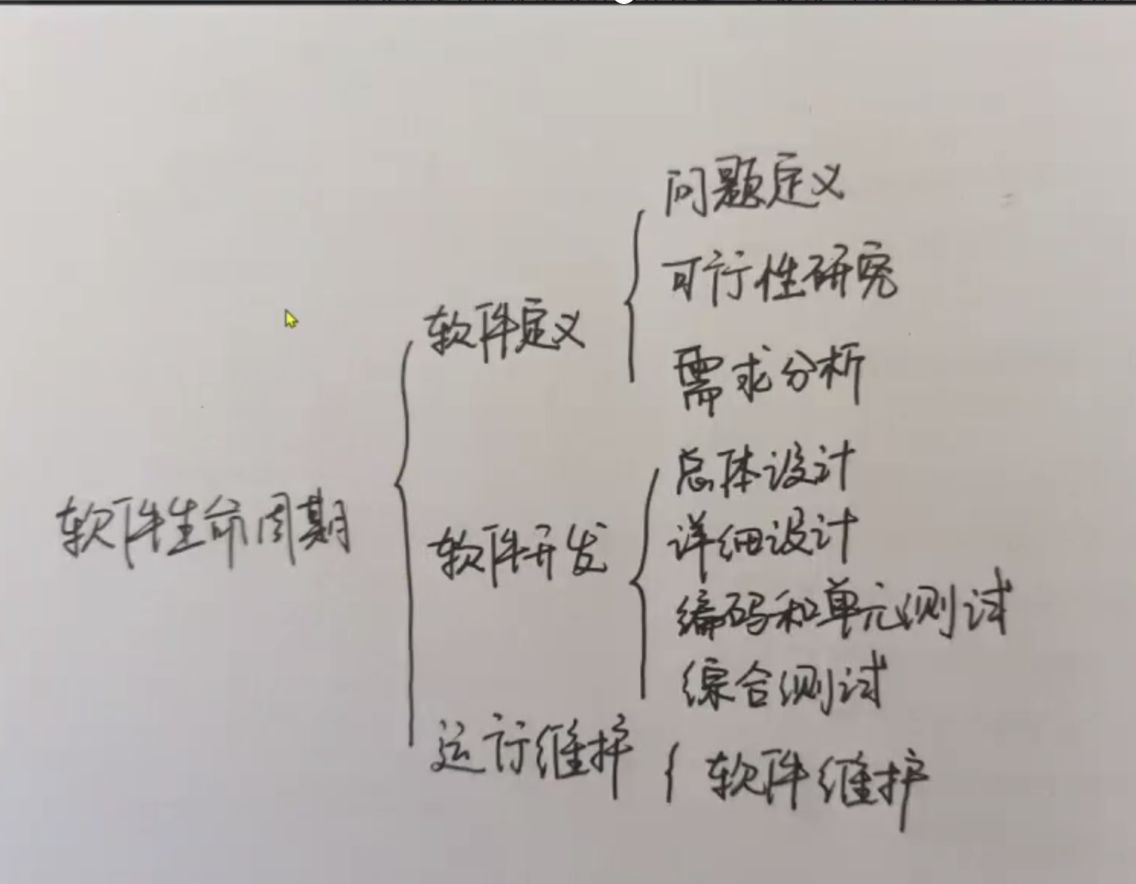 软件生命周期
软件定义
问题定义
可行性研究
需求分析
软件开发
总体设计
详细设计
编码和单元测试
综合测试
运行维护
软件维护